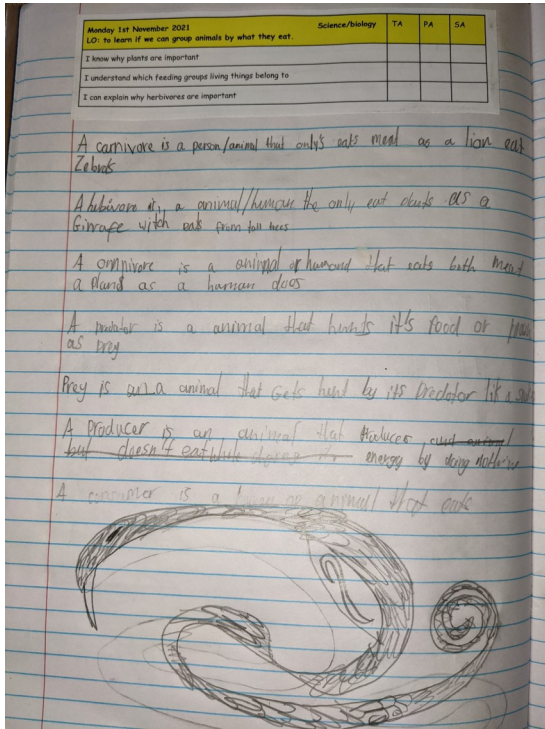 Monday 1st November 2021 Science/biology TA PA SA
LO: to learn if we can group animals by what they eat.
I know why plants are important
I understand which feeding groups living things belong to
I can explain why herbivores are important
A carnivore is a person/animal that only's eats meat as a lion eat
Zebras
A a animal/human the only eat as a
Giraffe witch eats from tall trees
A omnivore is a animal or that eats both meat
a as a human does
A predator is a animal that hunts it's food or
as prey
Prey is a animal that gets hunt by its predator
A producer is an animal that
but doesn't eat while energy by doing
A consumer is a animal that eats